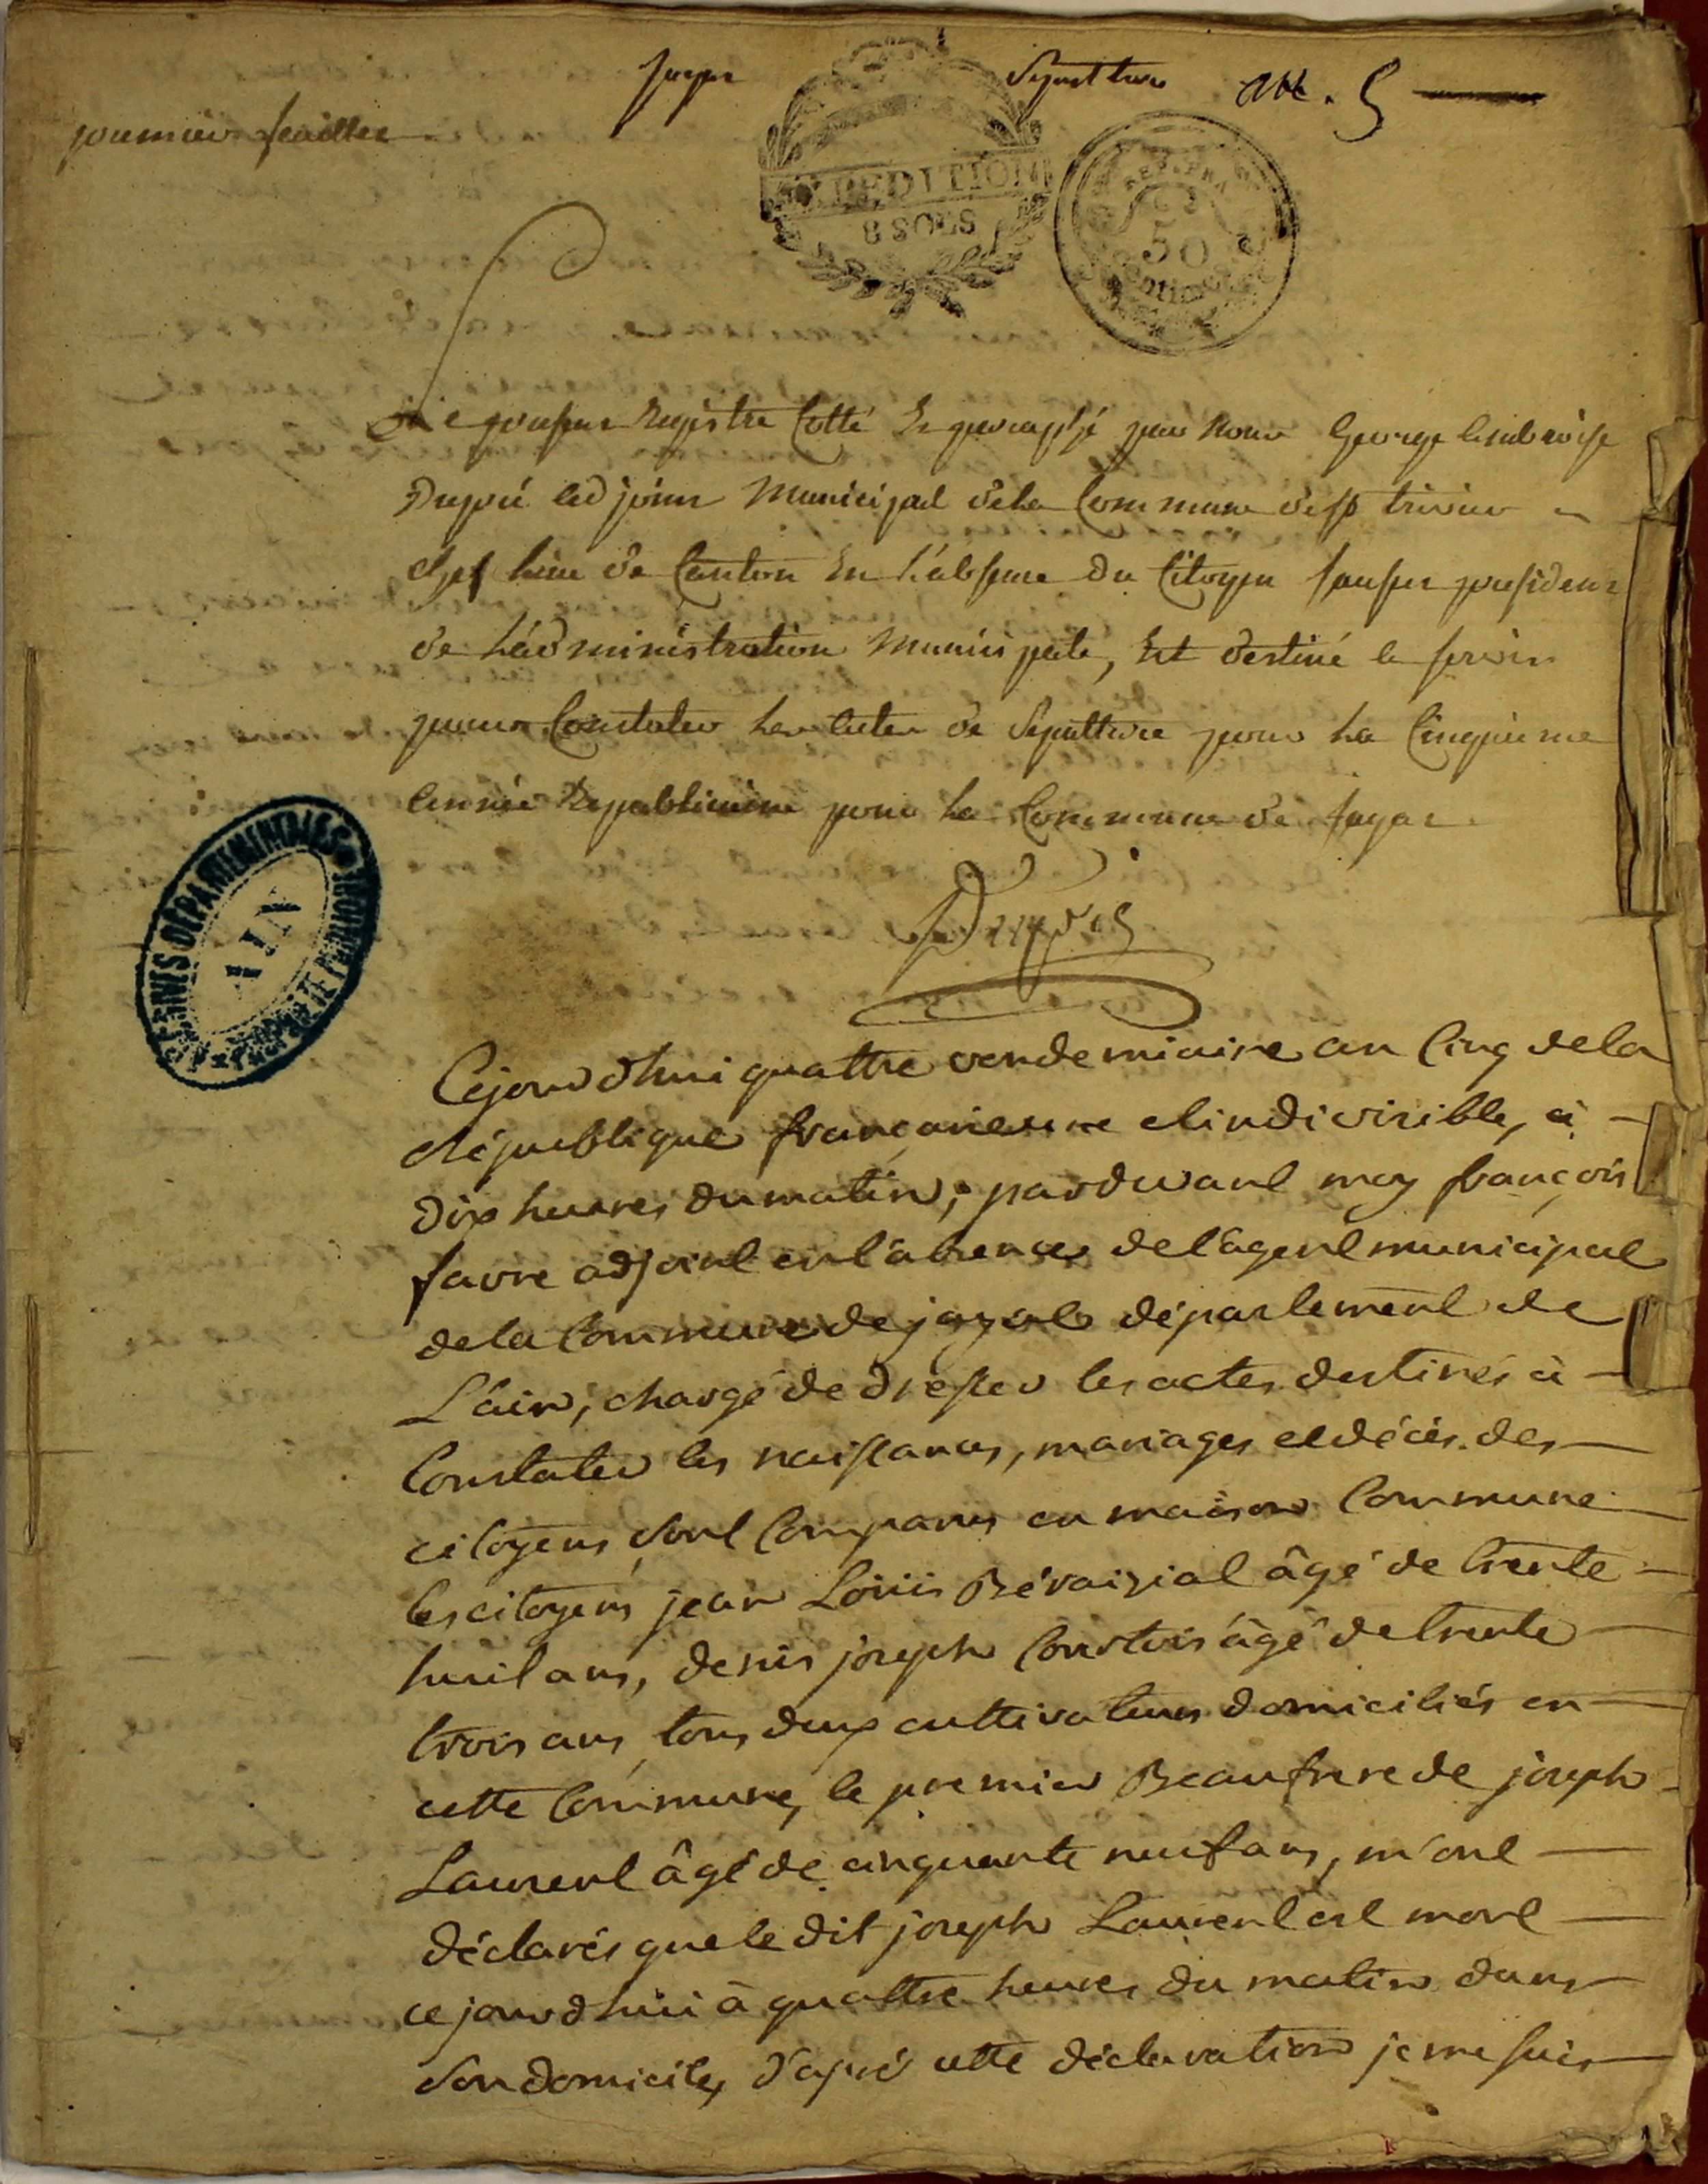 jayat Sepulture an. 5
premier feuillet
EXPEDITION
8 SOLS
REP. FRA
50
centimes
Le present Registre Cotté et paraphé par nous George Ambroise
Dupré adjoint Municipal de la Commune de st trivier
chef lieu de Canton en l'absence du Citoyen
de l'administration Municipale, est destiné a servir
pour Constater les actes de Sepulture pour la Cinquieme
année Republicaine pour la Commune de Jayat
Dupré
ARCHIVES DÉPARTEMENTALES
AIN
PROPRIÉTÉ PUBLIQUE
Cejourdhui quattre vendemiaire an Cinq de la
république françaiese une et indivisible, à
dix heures du matin; pardevant moy françois
favre adjoint en l'absence de l'agent municipal
de la Commune de jayat département de
L'ain, chargé de dresser les actes destinés à
Constater les naissances, mariages et décès des
citoyens, sont Comparus en maison Commune
les citoyens jean Loüis Bévaizial âgé de trente
huit ans, denis joseph âgé de trente
trois ans, tous deux cultivateurs domiciliés en
cette Commune, le premier Beaufrere de joseph
Laurent âgé de cinquante neuf ans, m'ont
déclarés que le dit joseph Laurent est mort
cejourdhui à quattre heures du matin dans
son domicile, d'après cette déclaration je me suis